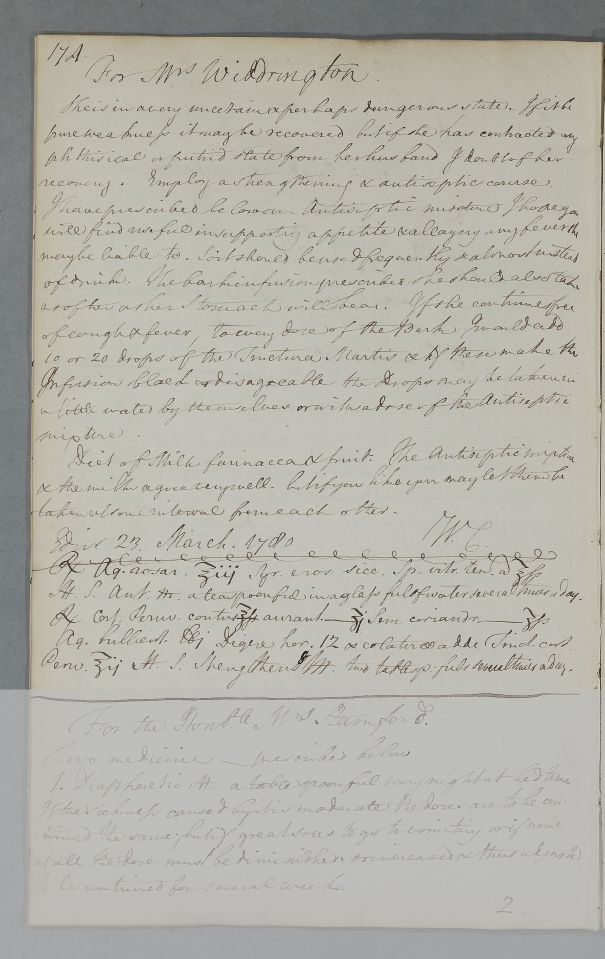 174.
For Mrs Widdrington.
She is in a very uncertain & perhaps dangerous state. If it be
pure weakness it may be recovered but if she has contracted any
phthisical or putrid state from her husband I doubt of her
recovery. Employ a strengthening & antiseptic course.
I have prescribed below an Antiseptic mixture I hope you
will find useful in supporting appetite & allaying any fever she
may be liable to. So it should be used frequently & almost instead
of drink. The bark infusion prescribed she should also take
as often as her Stomach will bear. If she continues free
of cough & fever, to every dose of the Bark I would add
10 or 20 drops of the Tinctura Martis & if these make the
Infusion black or disagreeable the Drops may be taken in
a little water by themselves or with a dose of the Antiseptic
mixture.
Diet of Milk farinacea & fruit. The Antiseptic mixture
& the milk agree very well. but if you like you may let them be
taken at some interval from each other.
Edinr 23. March. 1780 W.C.
℞ Aq. rosar. ℥iij Syr. e ros. sicc. Sp. vitr. ten. a ℥ß
M. S. Ant. Mr. a teaspoonful in a glassful of water several times a day.
℞ Cort. Peruv. contus. aurant. Sem. coriandr. ʒß
Aq. bullient. ℔j Digere hor. 12 & colaturae adde Tinct. cort.
Peruv. ℥ij M. S. Strengthens M. two tablesp. fuls several times a day.
For the Honble Mrs Stamford.
Two medicines prescribed below.
1. Diaphoretic M. a table spoonful every night at bed time.
If the sickness caused by it is moderate the dose are to be con
tinued the same; but if great so as to go to vomiting or if none
at all the dose must be diminished or increased & thus adjusted
to be continued for several weeks.
2.